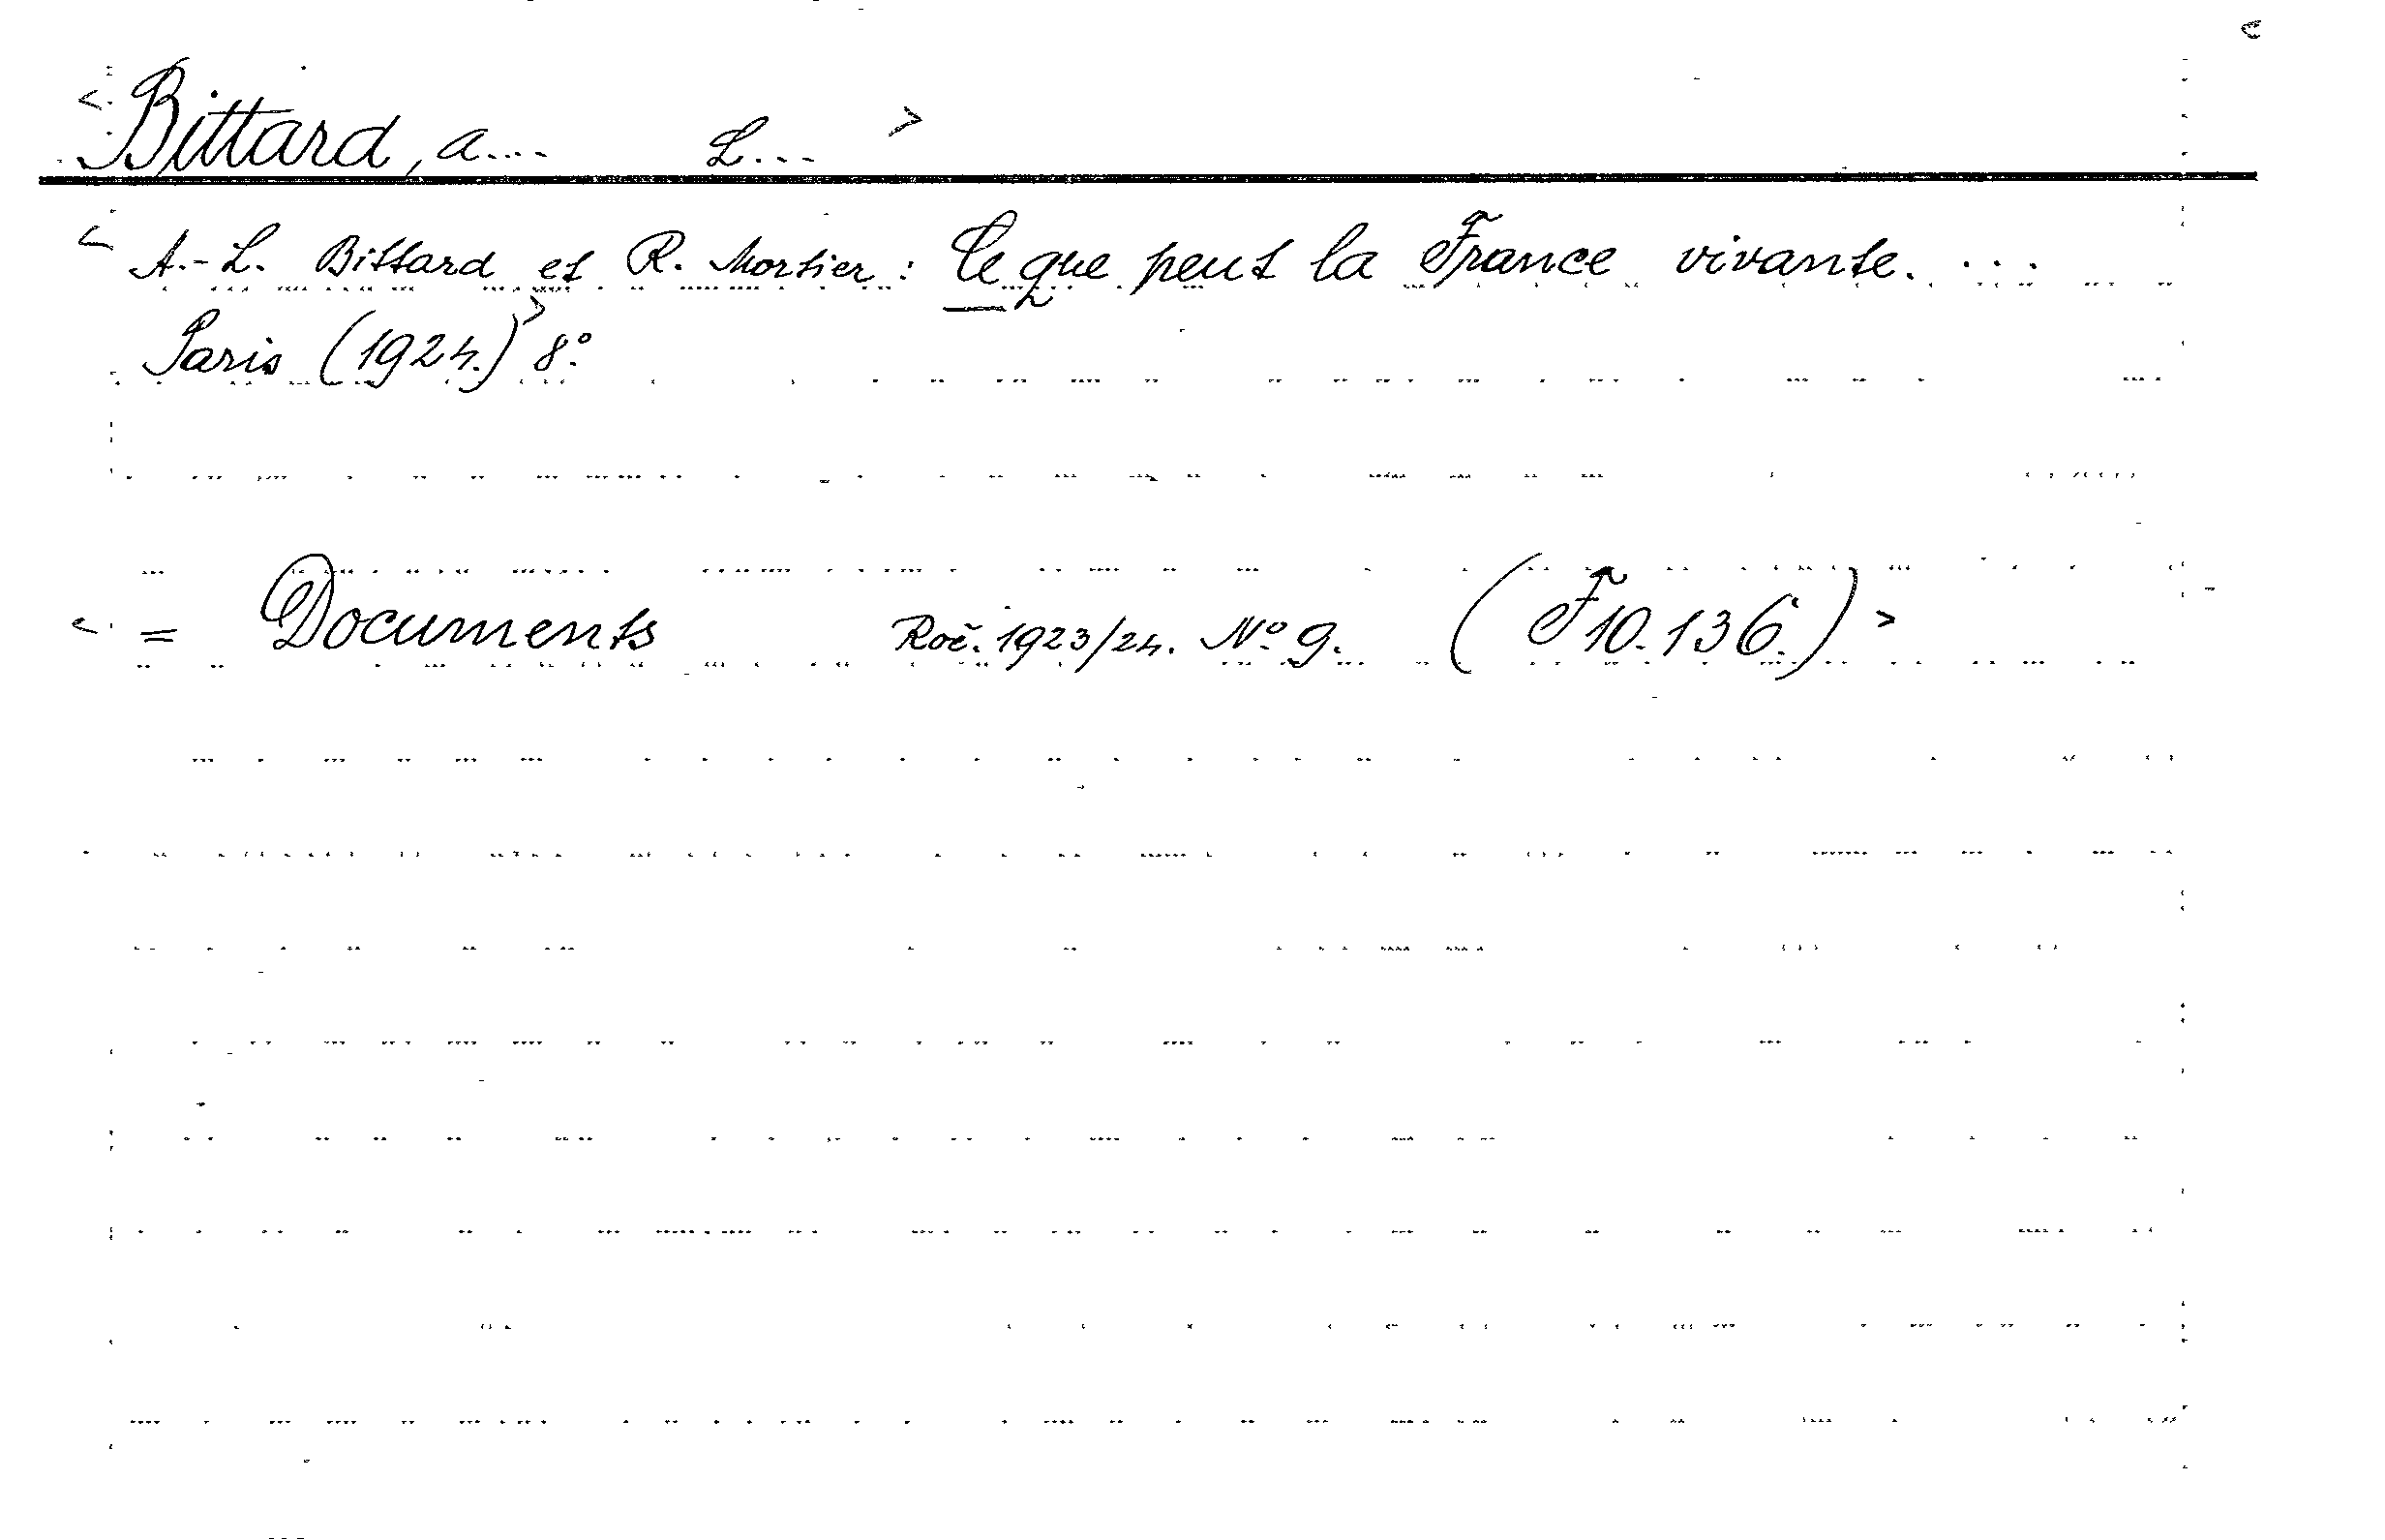 <Bittard, A.... L...>
<A.-L. Bittard et R. Mortier: Ce que peut la France vivante. ...
Paris (1924.)> 8°.
<= Documents Roč. 1923/24. N° 9. (F 10.136.)>